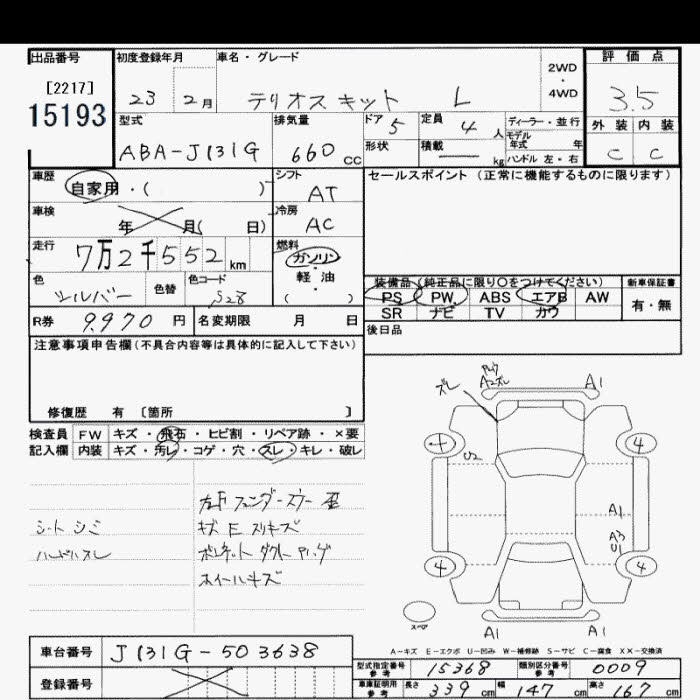 出品番号
[2217]
15193
初度登録年月
23 2月
車名・グレード
テリオスキット L
2WD
・
4WD
評価点
3.5
外装 内装
C C
型式
ABA-J131G
排気量
660 CC
ドア 5
定員 4 人
形状
積載 ― kg
ディーラー・並行
モデル年式 年
ハンドル 左・右
車歴
自家用・( )
シフト
AT
セールスポイント (正常に機能するものに限ります)
車検
年 月( 日)
冷房
AC
走行
7万2千552 km
燃料
ガソリン
軽・油
( )
色
シルバー
色替
色コード
S28
装備品(純正品に限り○をつけてください)
PS PW ABS エアB AW
SR ナビ TV カワ
新車保証書
有・無
R券 9,970 円
名変期限 月 日
後日品
注意事項申告欄(不具合内容等は具体的に記入して下さい)
修復歴 有 〔箇所 〕
検査員 FW キズ・飛石・ヒビ割・リペア跡・×要
記入欄 内装 キズ・汚レ・コゲ・穴・スレ・キレ・破レ
シート シミ
ハンドルスレ
左F フェンダーステー 歪
キズ E スリキズ
ボンネット ダクト
ホイールキズ
ズレ
A1
U2
4
4
4
A1
A3
U1
A1
A1
スペア
A-キズ E-エクボ U-凹み W-補修跡 S-サビ C-腐食 XX-交換済
車台番号 J131G-503638
登録番号
型式指定番号 参考 15368
類別区分番号 参考 0009
車庫証明用 参考 長さ 339 cm 幅 147 cm 高さ 167 cm